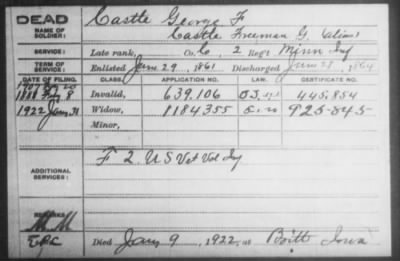 DEAD Castle George F
NAME OF SOLDIER: Castle Freeman G. (alias)
SERVICE: Late rank, Co. C, 2 Reg't Minn Inf
TERM OF SERVICE: Enlisted June 29, 1861 Discharged June 28, 1864
DATE OF FILING. CLASS. APPLICATION NO. LAW. CERTIFICATE NO.
1888 Feb 8 Invalid, 639.106 445.854
1922 Jany 31 Widow, 1184355 925-545-
Minor,
ADDITIONAL SERVICES: F 2 US Vet Vol Inf
REMARKS
MM
Died Jany 9, 1922, at Britt Iowa